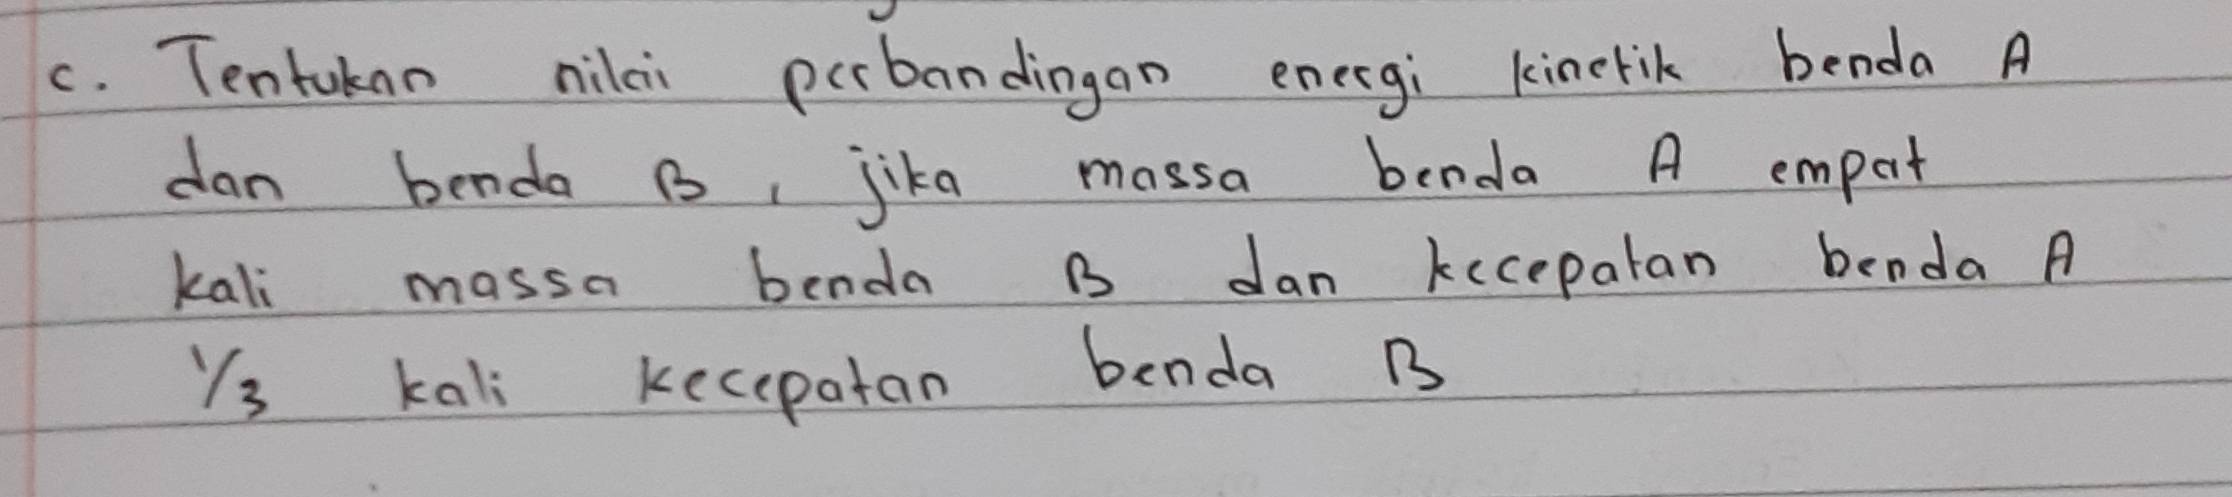 c. Tentukan nilai perbandingan energi kinetik benda A
dan benda B, jika massa benda A empat
kali massa benda B dan kecepatan benda A
1/3 kali kecepatan benda B